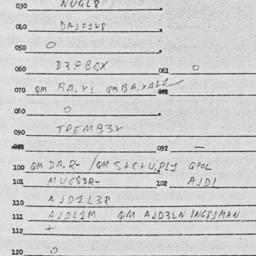 030 NUGL8
040 DAJOJK8
050 O
060 D3PBGX 061 O
070 QM BA.YL QMBA.YALY
080 O
090 TPEMB3X
092 —
100 QM DA.R- /QM S+C+U,PLY QPOL
101 MUGS3R- 102 AJDL
110 AJD1L3R
111 AJDL1M QM AJD3LN ING81MAN
112 +
120 O